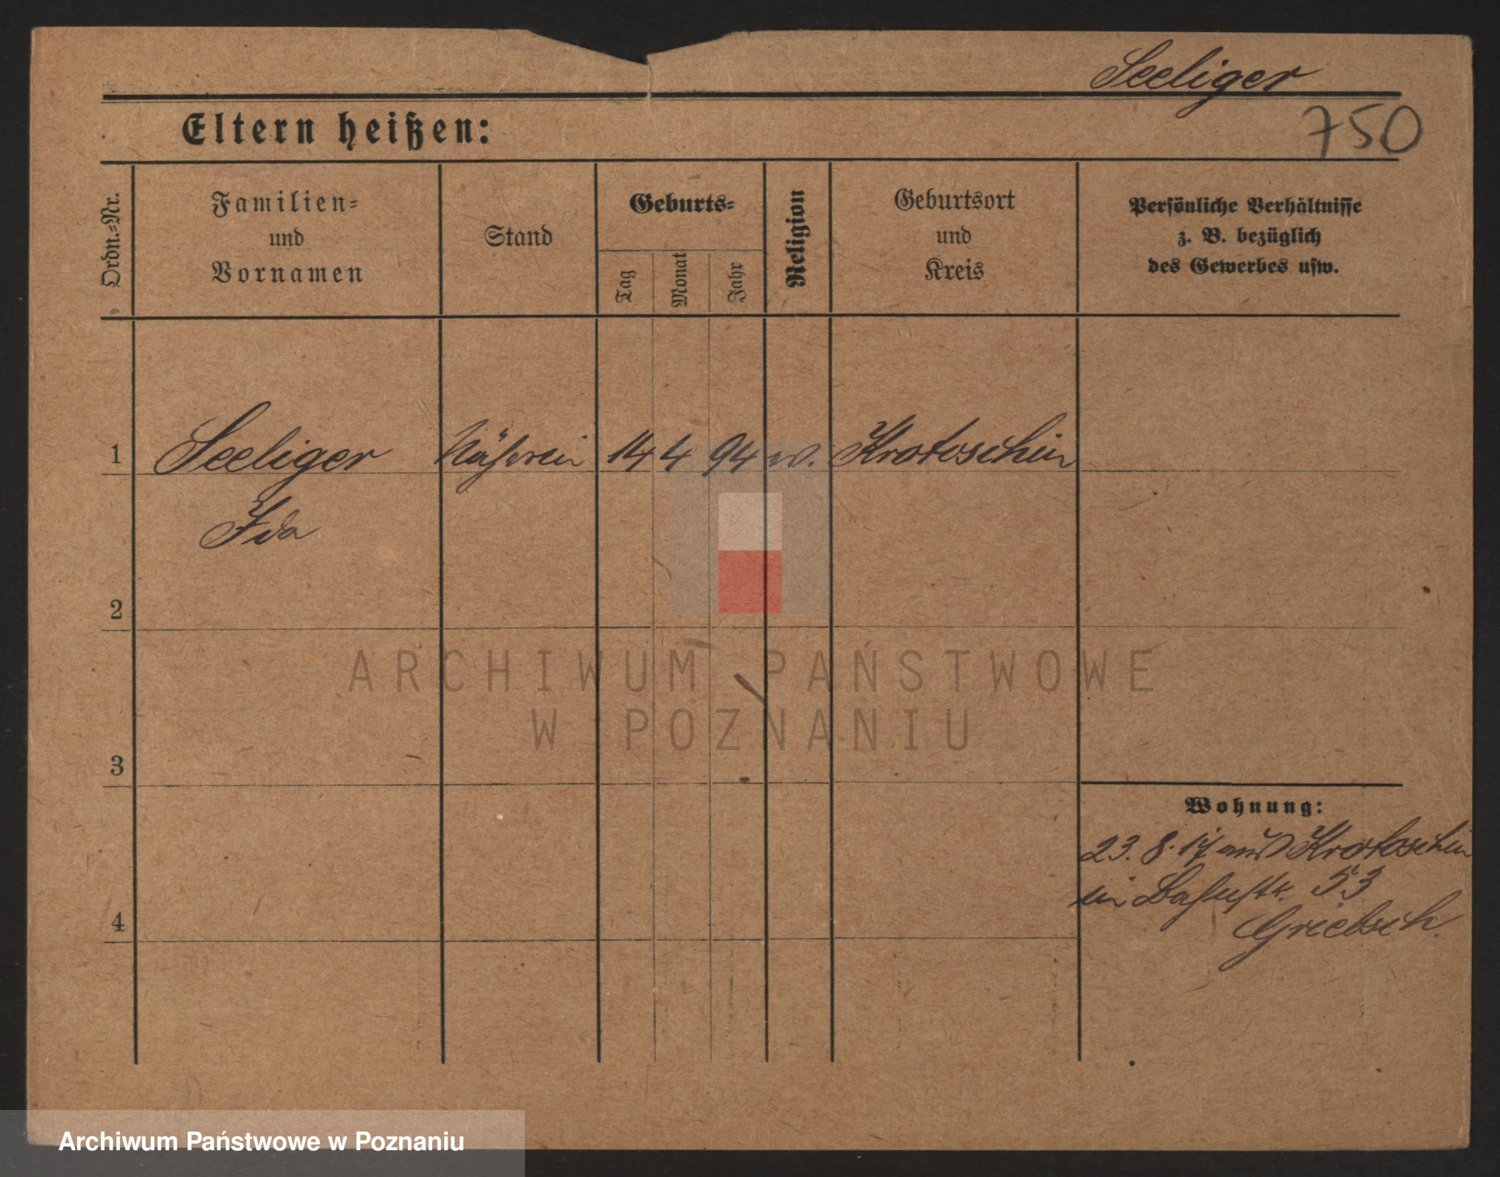 Seeliger
750
Eltern heißen:
Ordn.=Nr.
Familien=
und
Vornamen
Stand
Geburts=
Tag
Monat
Jahr
Religion
Geburtsort
und
Kreis
Persönliche Verhältnisse
z. B. bezüglich
des Gewerbes usw.
1
Seeliger Näherin 14 4 94 Krotoschin
Ida
2
ARCHIWUM PAŃSTWOWE
W POZNANIU
3
Wohnung:
23. 8. 17 aus Krotoschin
in Bahnstr. 53
Griebsch.
4
Archiwum Państwowe w Poznaniu